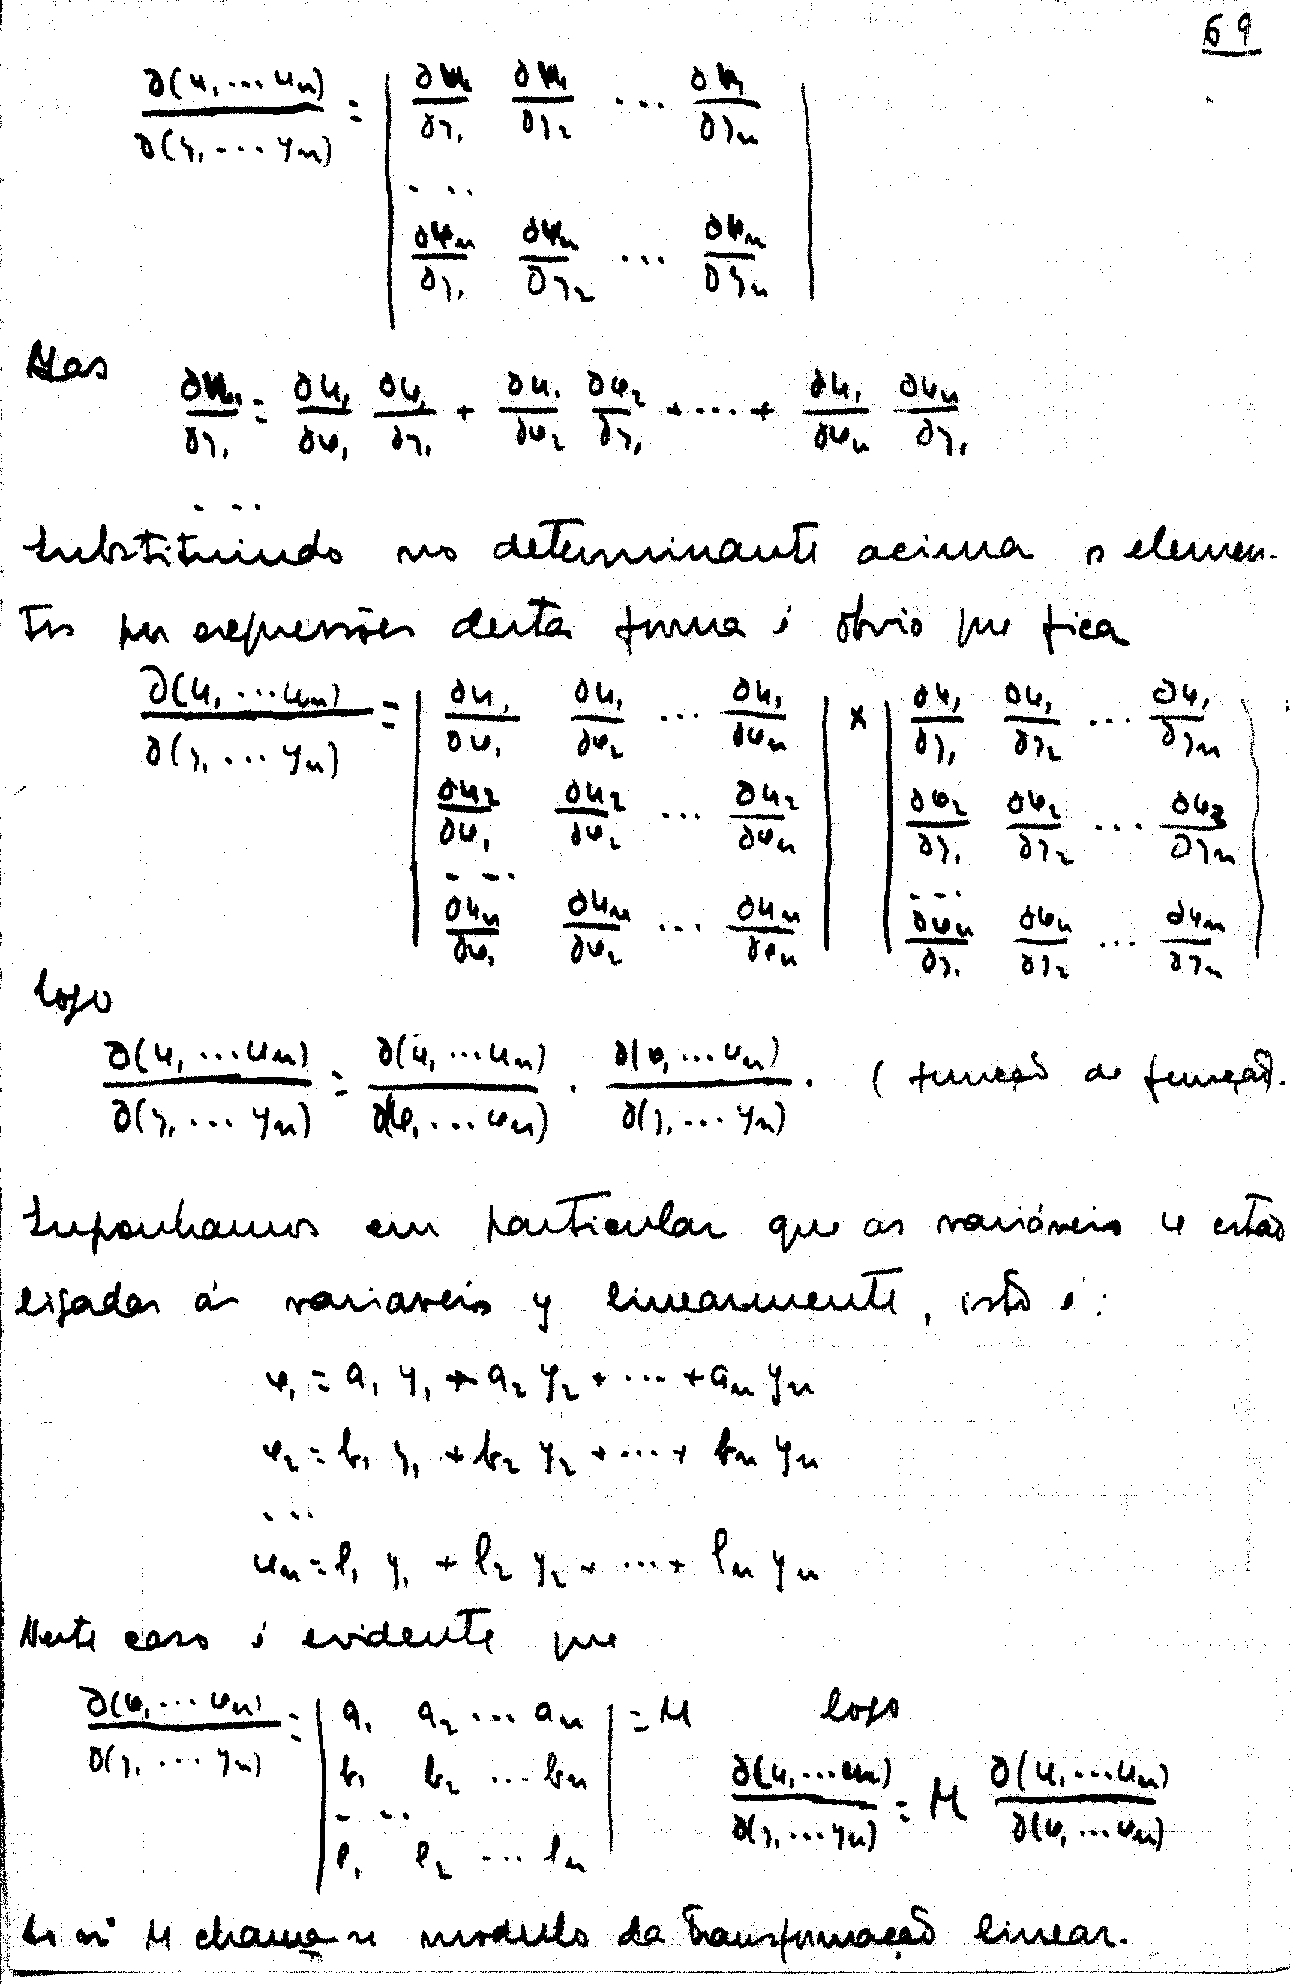 69
∂(u₁ ... uₙ) / ∂(y₁ ... yₙ) = | ∂u₁/∂y₁ ∂u₁/∂y₂ ... ∂u₁/∂yₙ |
| ... |
| ∂uₙ/∂y₁ ∂uₙ/∂y₂ ... ∂uₙ/∂yₙ |
Mas
∂u₁/∂y₁ = ∂u₁/∂φ₁ ∂φ₁/∂y₁ + ∂u₁/∂φ₂ ∂φ₂/∂y₁ + ... + ∂u₁/∂φₙ ∂φₙ/∂y₁
...
Substituindo no determinante acima os elemen-
tos por expressões desta forma é óbvio que fica
∂(u₁ ... uₙ) / ∂(y₁ ... yₙ) = | ∂u₁/∂φ₁ ∂u₁/∂φ₂ ... ∂u₁/∂φₙ | × | ∂φ₁/∂y₁ ∂φ₁/∂y₂ ... ∂φ₁/∂yₙ |
| ∂u₂/∂φ₁ ∂u₂/∂φ₂ ... ∂u₂/∂φₙ | | ∂φ₂/∂y₁ ∂φ₂/∂y₂ ... ∂φ₂/∂yₙ |
| ... | | ... |
| ∂uₙ/∂φ₁ ∂uₙ/∂φ₂ ... ∂uₙ/∂φₙ | | ∂φₙ/∂y₁ ∂φₙ/∂y₂ ... ∂φₙ/∂yₙ |
logo
∂(u₁ ... uₙ) / ∂(y₁ ... yₙ) = ∂(u₁ ... uₙ) / ∂(φ₁ ... φₙ) . ∂(φ₁ ... φₙ) / ∂(y₁ ... yₙ) . (função de função).
Suponhamos em particular que as variáveis φ estão
ligadas ás variaveis y linearmente, isto é:
φ₁ = a₁ y₁ + a₂ y₂ + ... + aₙ yₙ
φ₂ = b₁ y₁ + b₂ y₂ + ... + bₙ yₙ
...
φₙ = l₁ y₁ + l₂ y₂ + ... + lₙ yₙ
Neste caso é evidente que
∂(φ₁ ... φₙ) / ∂(y₁ ... yₙ) = | a₁ a₂ ... aₙ | = M logo
| b₁ b₂ ... bₙ |
| ... |
| l₁ l₂ ... lₙ |
∂(u₁ ... uₙ) / ∂(y₁ ... yₙ) = M ∂(u₁ ... uₙ) / ∂(φ₁ ... φₙ)
M chama-se modulo da transformação linear.